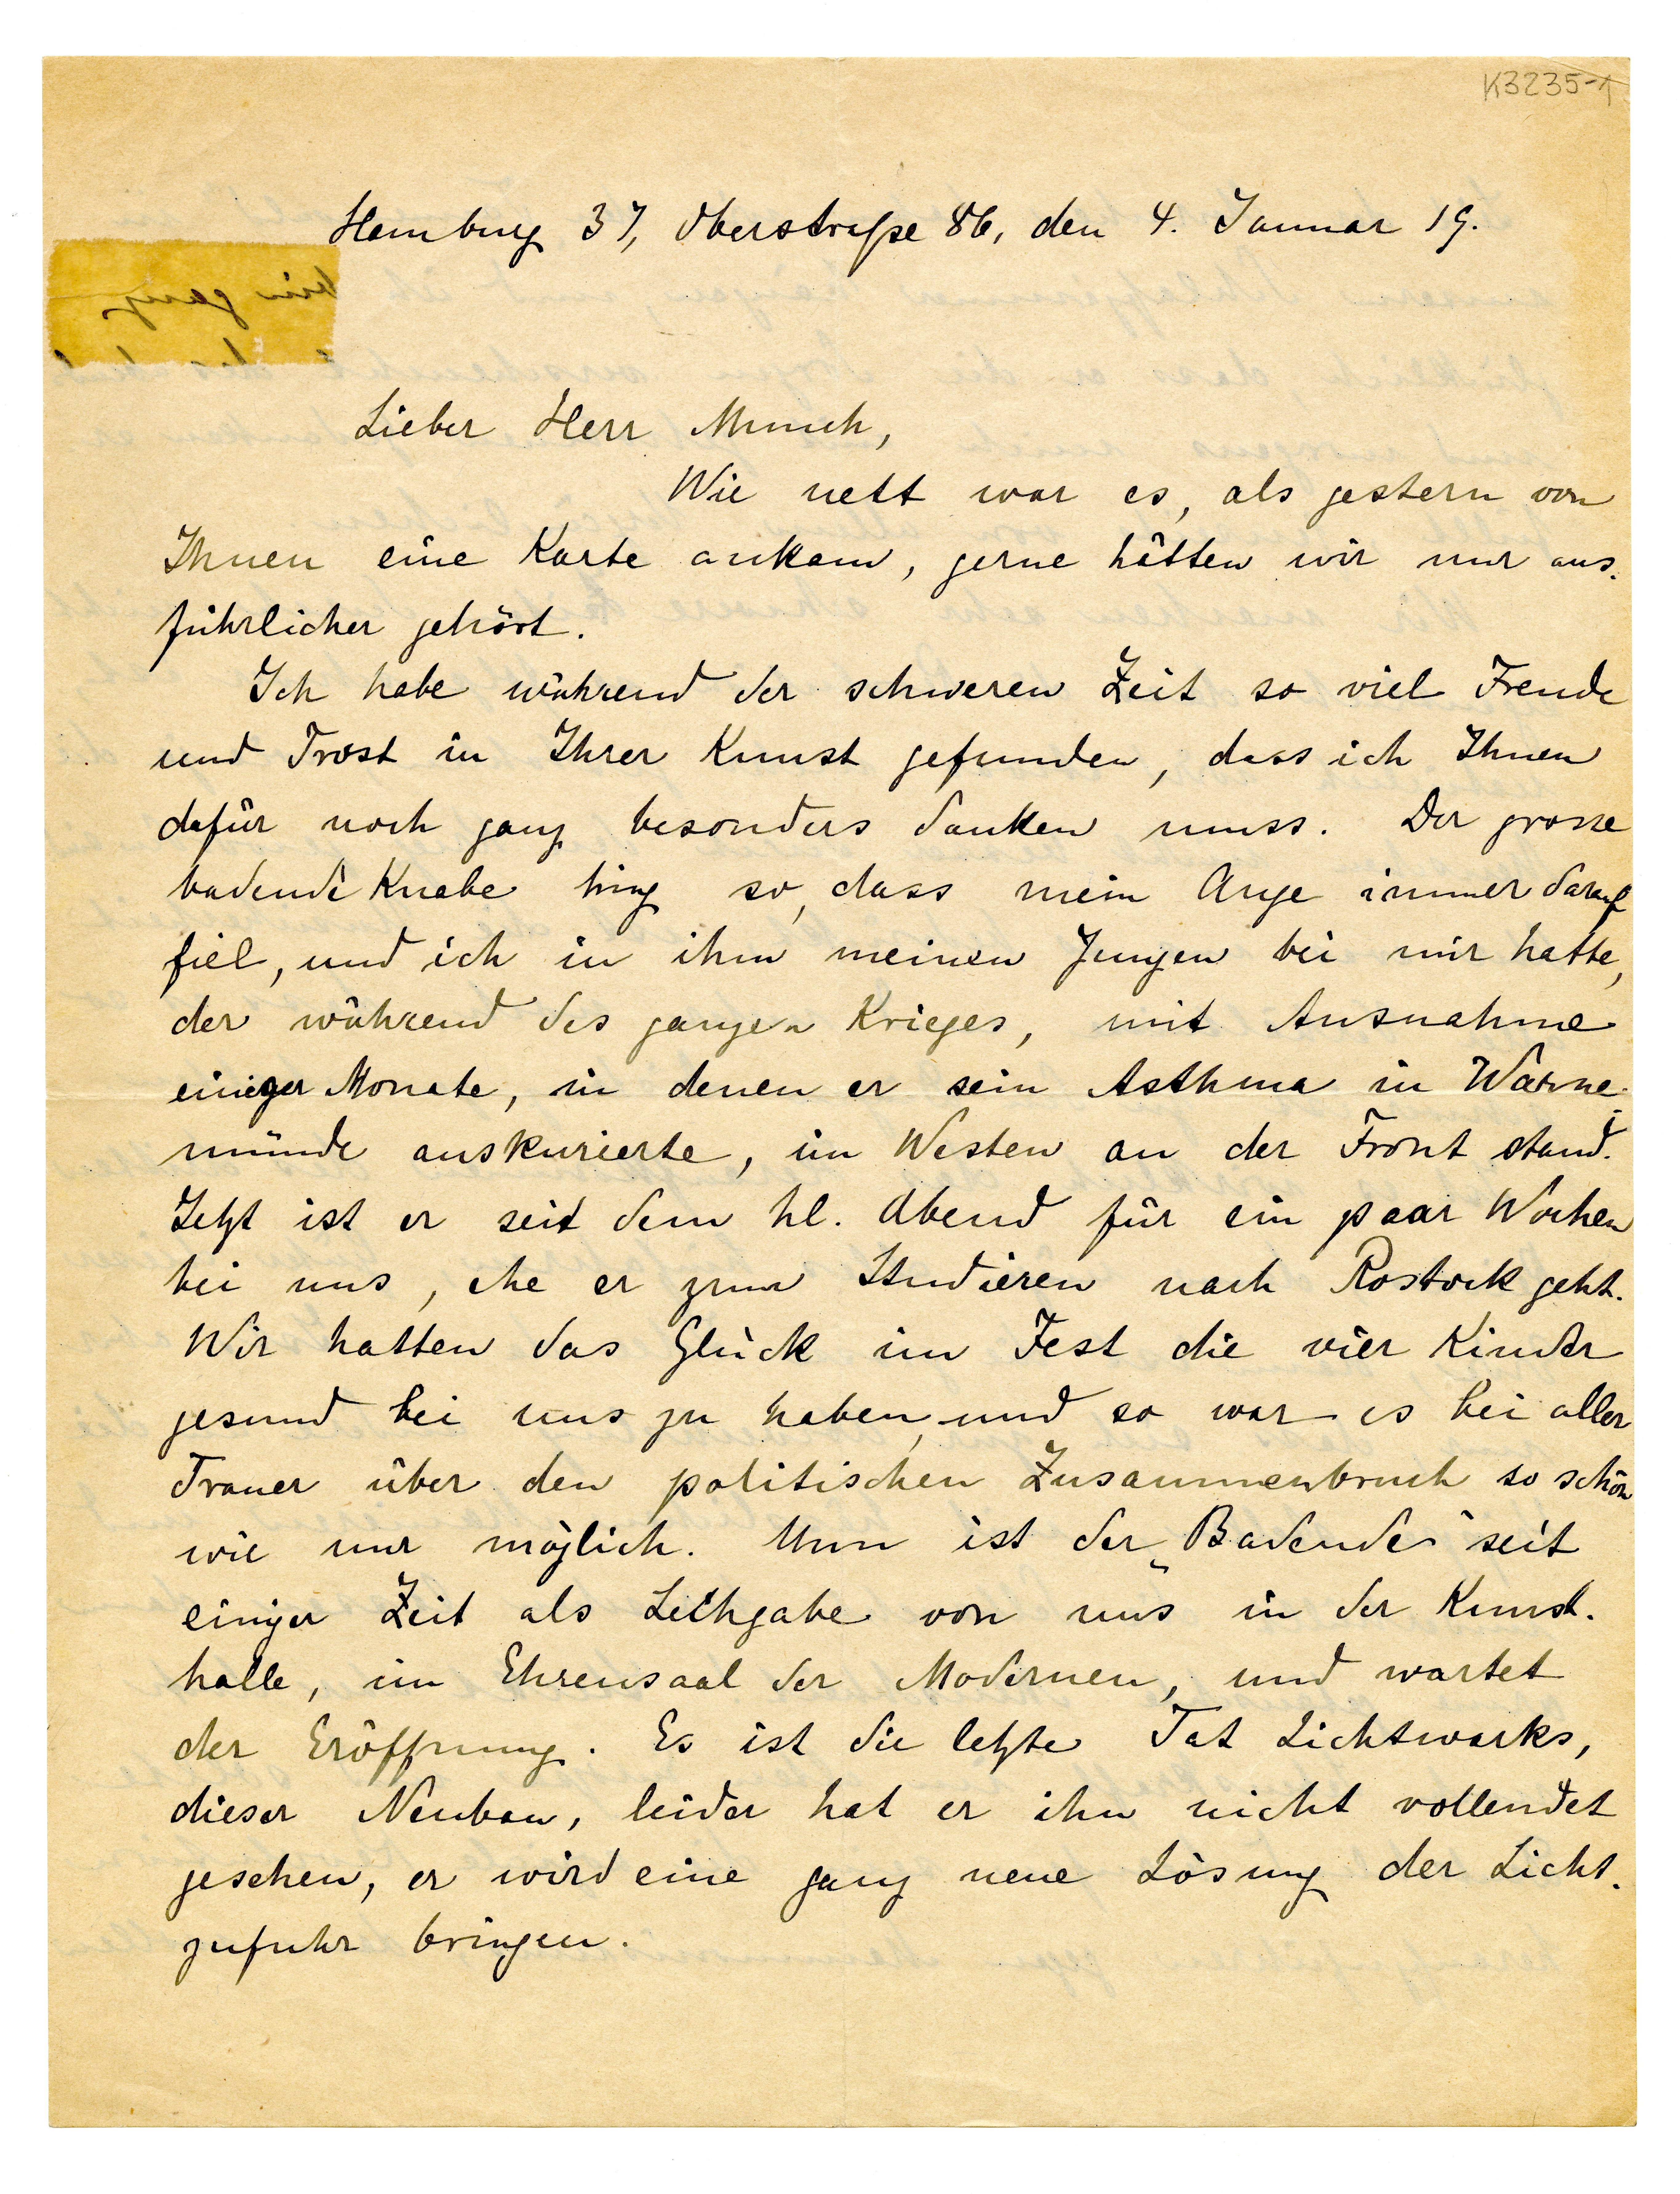 K3235-1
Hamburg 37, Oberstraße 86, den 4. Januar 19.
Lieber Herr Munch,
Wie nett war es, als gestern von
Ihnen eine Karte ankam, gerne hätten wir nur aus-
führlicher gehört.
Ich habe während der schweren Zeit so viel Freude
und Trost in Ihrer Kunst gefunden, dass ich Ihnen
dafür noch ganz besonders danken muss. Der grosse
badende Knabe hing so, dass mein Auge immer darauf
fiel, und ich in ihm meinen Jungen bei mir hatte,
der während des ganzen Krieges, mit Ausnahme
einiger Monate, in denen er sein Asthma in Warne-
münde auskurierte, im Westen an der Front stand.
Jetzt ist er seit dem hl. Abend für ein paar Wochen
bei uns, ehe er zum Studieren nach Rostock geht.
Wir hatten das Glück im Fest die vier Kinder
gesund bei uns zu haben, und so war es bei aller
Trauer über den politischen Zusammenbruch so schön
wie nur möglich. Nun ist der „Badende“ seit
einiger Zeit als Leihgabe von uns in der Kunst-
halle, im Ehrensaal der Modernen, und wartet
der Eröffnung. Es ist die letzte Tat Lichtwarks,
dieser Neubau, leider hat er ihn nicht vollendet
gesehen, er wird eine ganz neue Lösung der Licht-
zufuhr bringen.